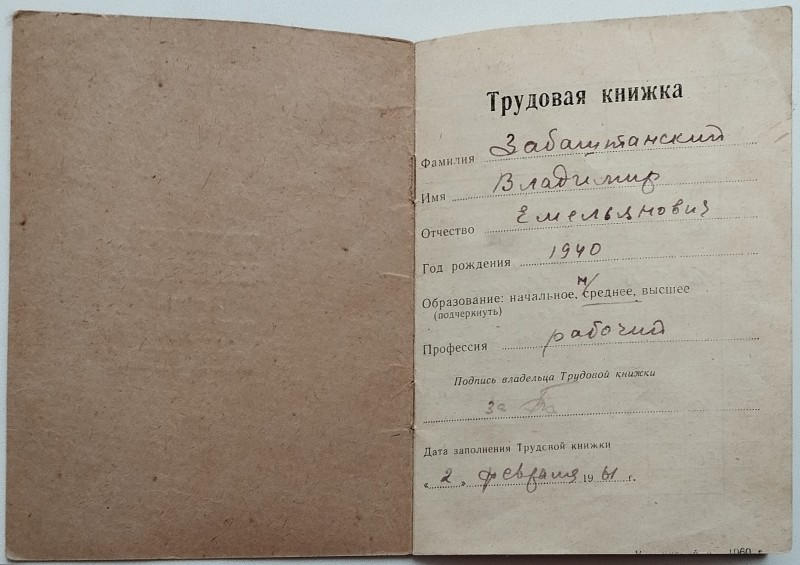 Трудовая книжка
Фамилия Забаштанский
Имя Владимир
Отчество Емельянович
Год рождения 1940
Образование: начальное, н/среднее, высшее
(подчеркнуть)
Профессия рабочий
Подпись владельца Трудовой книжки
За
Дата заполнения Трудовой книжки
«2» февраля 1961 г.
1960 г.